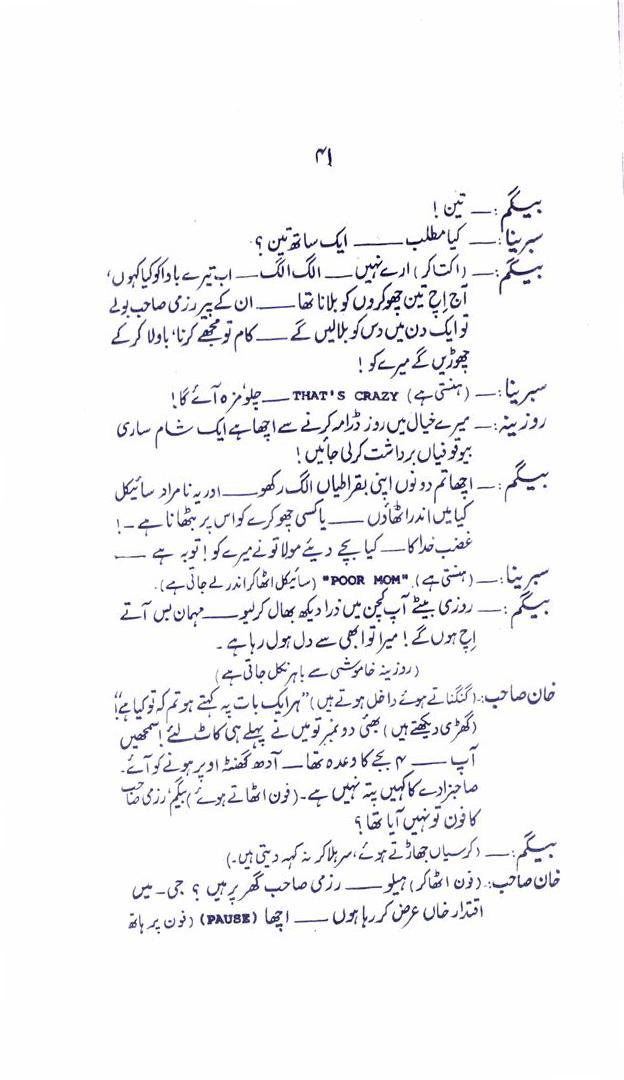 ۴۱
بیگم :ـــ تین !
سبرینا :ـــ کیا مطلب ـــــ ایک ساتھ تین ؟
بیگم :ـــ (اکتا کر) ارے نہیں ـــ الگ الگ ـــ اب تیرے باوا کو کیا کہوں،
آج اِچ تین چھوکروں کو بلانا تھا ـــــ ان کے پیر رزمی صاحب بولے
تو ایک دن میں دس کو بلالیں گے ـــ کام تو مجھے کرنا، باولا کر کے
چھوڑیں گے میرے کو !
سبرینا :ـــ (ہنستی ہے) THAT'S CRAZY ـــ چلو مزہ آئے گا!
روزینہ :ـــ میرے خیال میں روز ڈرامہ کرنے سے اچھا ہے ایک شام ساری
بیوقوفیاں برداشت کرلی جائیں !
بیگم :ـــ اچھا تم دونوں اپنی بقراطیاں الگ رکھو ـــــ اور یہ نامراد سائیکل
کیا میں اندر اٹھاؤں ـــــ یا کسی چھوکرے کو اس پر بٹھانا ہے ـ !
غضب خدا کا ـــ کیا بچے دیئے مولا تو نے میرے کو ! توبہ ہے ـــــ
سبرینا :ـــ (ہنستی ہے) "POOR MOM" (سائیکل اٹھا کر اندر لے جاتی ہے)۔
بیگم :ـــ روزی بیٹے آپ کچن میں ذرا دیکھ بھال کرلیو ـــ مہمان بس آتے
اِچ ہوں گے ! میرا تو ابھی سے دل ہول رہا ہے ۔
(روزینہ خاموشی سے باہر نکل جاتی ہے)
خان صاحب :۔ (گنگناتے ہوئے داخل ہوتے ہیں) "ہر ایک بات پہ کہتے ہو تم کہ تو کیا ہے"!
(گھڑی دیکھتے ہیں) بھئی دو نمبر تو میں نے پہلے ہی کاٹ لئے ! سمجھیں
آپ ـــــ ۴ بجے کا وعدہ تھا ـــ آدھ گھنٹہ اوپر ہونے کو آئے۔
صاحبزادے کا کہیں پتہ نہیں ہے۔ (فون اٹھاتے ہوئے) بیگم، رزمی صاحب
کا فون تو نہیں آیا تھا ؟
بیگم :ـــ (کرسیاں جھاڑتے ہوئے، سر ہلا کر نہ کہہ دیتی ہیں۔)
خان صاحب :۔ (فون اٹھا کر) ہیلو ـــــ رزمی صاحب گھر پر ہیں ؟ جی۔ میں
اقتدار خاں عرض کر رہا ہوں ـــــ اچھا (PAUSE) (فون پر ہاتھ